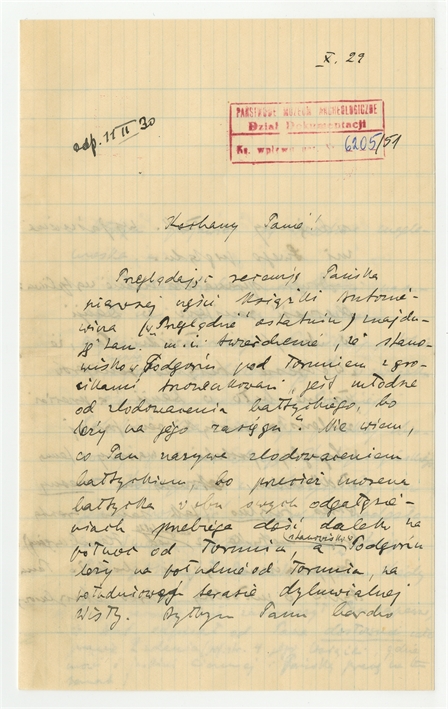 X. 29
odp. 11 II 30
PAŃSTWOWE MUZEUM ARCHEOLOGICZNE
Dział Dokumentacji
Ks. wpływu 6205/51
Kochany Panie!
Przeglądając recenzję Pańską
pierwszej części książki Antonie-
wicza (w Przeglądzie ostatnim) znajdu-
ję tam m. i. twierdzenie, że stano-
wisko w Podgórzu pod Toruniem z gro-
cikami "jest młodsze
od zlodowacenia bałtyckiego, bo
leży na jego zasięgu". Nie wiem,
co Pan nazywa zlodowaceniem
bałtyckiem, bo przecież morena
bałtycka w obu swych odgałęzie-
niach przebiega dość daleko na
północ od Torunia, a stanowisko w Podgórzu
leży na południe od Torunia, na
południowej terasie dyluwialnej
Wisły. Byłbym Panu bardzo